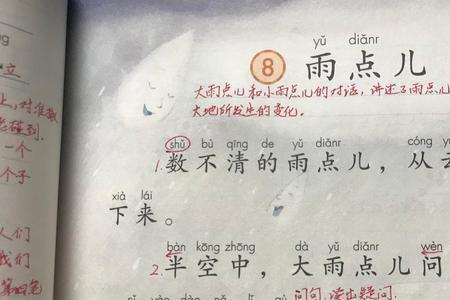 ng
立
上,对准
碰到.
一个
个子
人们
我们
第四笔
yǔ diǎnr
8 雨点儿
大雨点儿和小雨点儿的对话,讲述了雨点儿
大地所发生的变化。
shǔ bù qīng de yǔ diǎnr cóng y
1.数不清的雨点儿,从
xià lái
下来。
bàn kōng zhōng dà yǔ diǎnr wèn
2.半空中,大雨点儿问
问句,读出疑问.